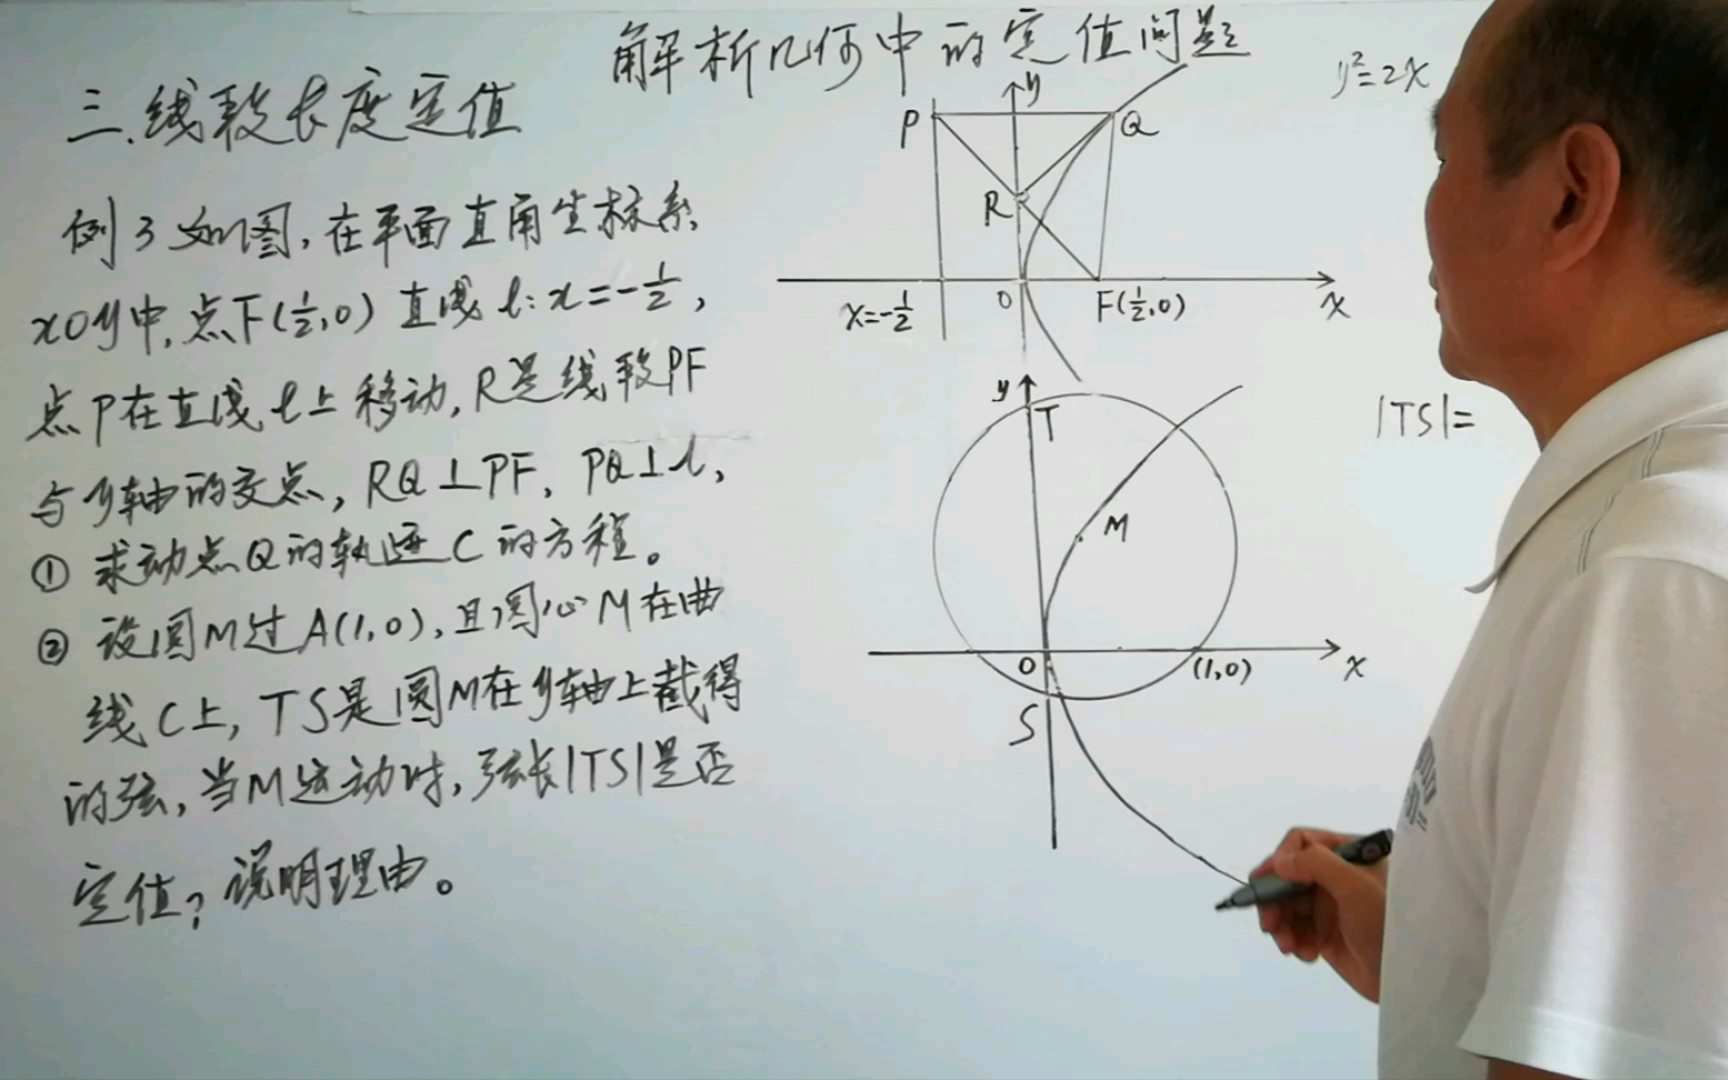 解析几何中的定值问题
三.线段长度定值
例3 如图,在平面直角坐标系
xOy中,点F(1/2,0) 直线 l: x=-1/2,
点P在直线l上移动,R是线段PF
与y轴的交点,RQ⊥PF, PQ⊥l,
① 求动点Q的轨迹C的方程。
② 设圆M过A(1,0),且圆心M在曲
线C上,TS是圆M在y轴上截得
的弦,当M运动时,弦长|TS|是否
定值?说明理由。
y²=2x
y
P
Q
R
x=-1/2
O
F(1/2,0)
x
y
T
M
|TS|=
O
(1,0)
x
S